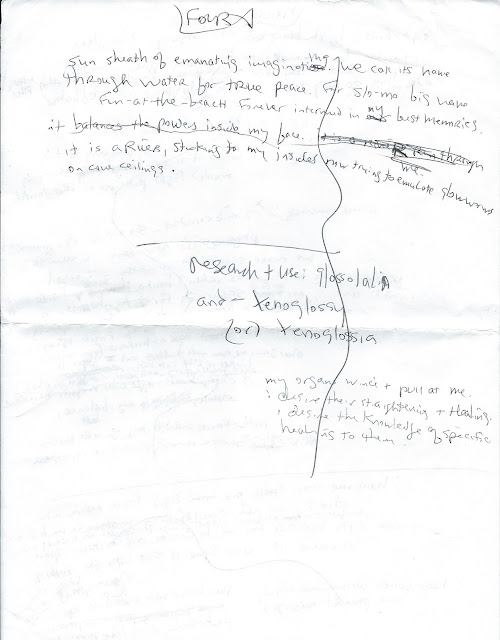 FOUR
Sun sheath of emanating imagination. We call its name
through water for true peace. For slo-mo big wave
Fun-at-the-beach forever interned in my best memories.
it balances the powers inside my face. it is a river through
it is a River, sticking to my insides now trying to emulate glowworms
on cave ceilings.
Research + use: glossolalia
and - Xenoglossy
(or) Xenoglossia
my organs wince + pull at me.
i desire their straightening + Healing.
i desire the knowledge of specific
healings to them